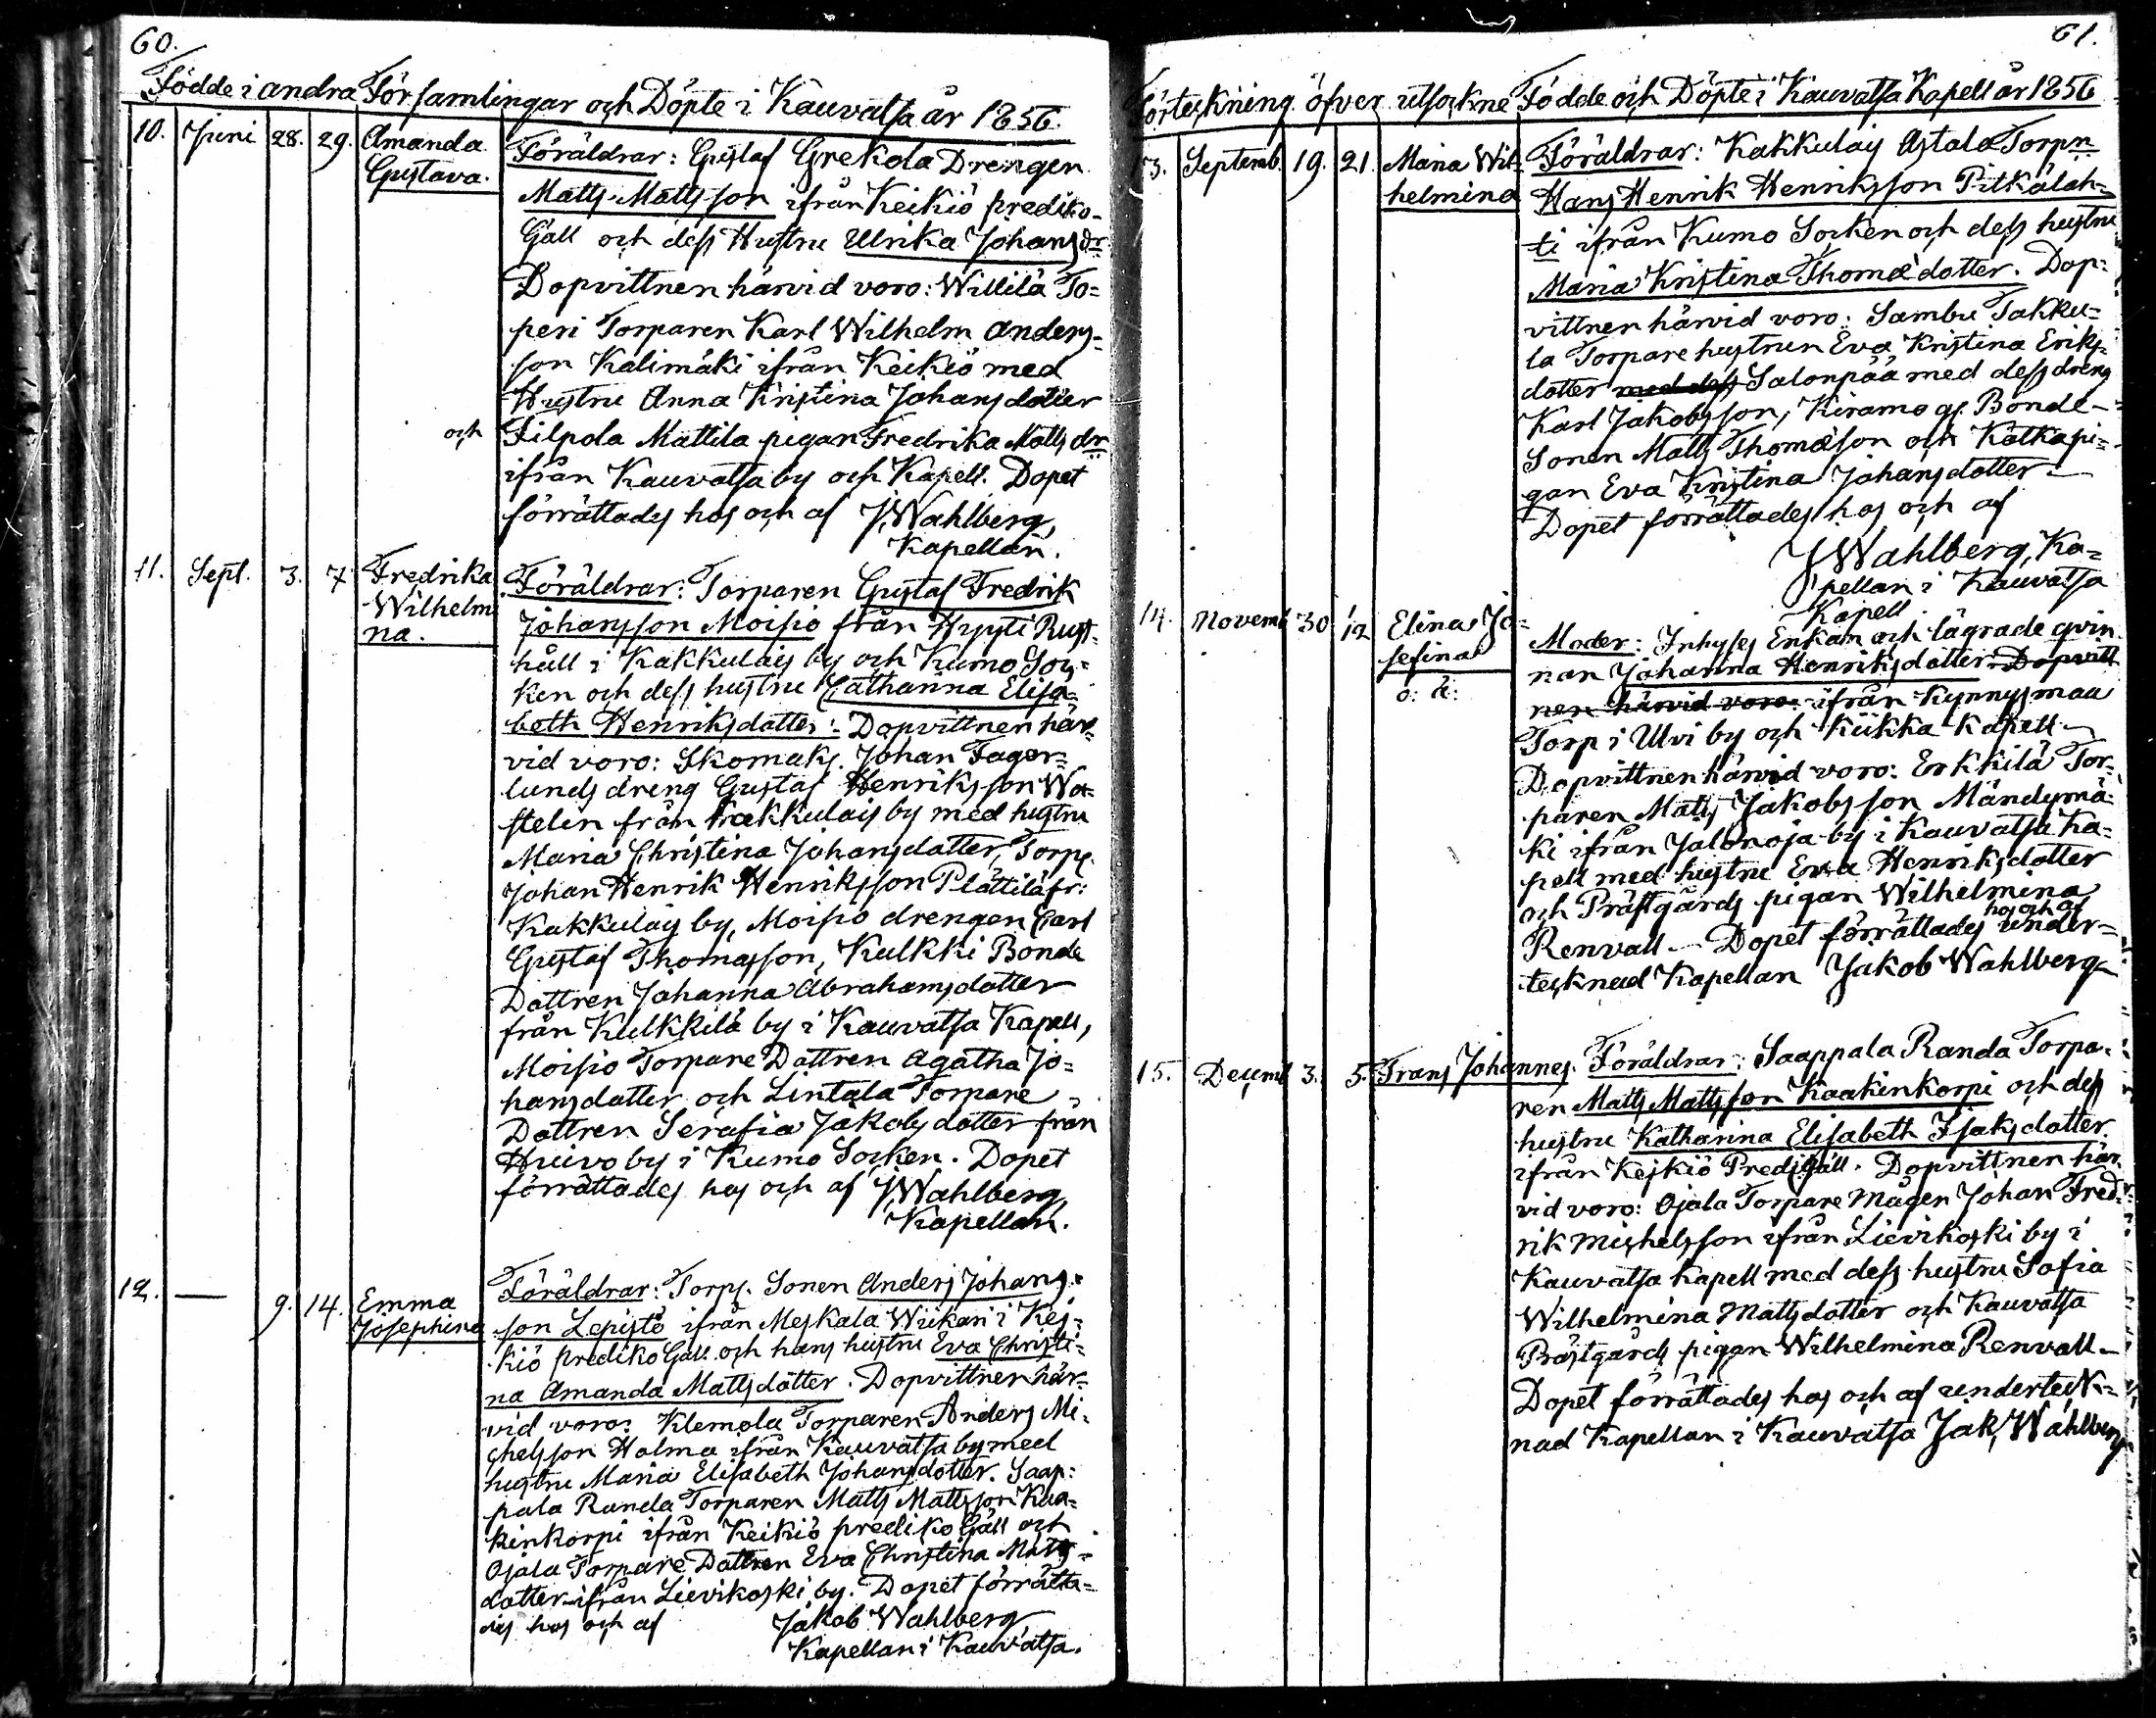 60.
Födde i andra Församlingar och Döpte i Kauvatsa år 1856.
10. Juni 28. 29. Amanda Gustava.
Föräldrar: Gustaf Grekola Drengen
Matts Mattsson ifrån Keikiö prediko-
Gäll och dess Hustru Ulrika Johansdr
Dopvittnen härvid voro: Willilä To=
peri Torparen Karl Wilhelm Anders=
son Kalimäki ifrån Keikiö med
Hustru Anna Kristina Johansdotter
och Filpola Mattila pigan Fredrika Matts dr
ifrån Kauvatsa by och Kapell. Dopet
förrättades hos och af J Wahlberg,
Kapellan.
11. Sept. 3. 7 Fredrika Wilhelmi na.
Föräldrar: Torparen Gustaf Fredrik
Johansson Moisio från Hyyti Rust=
håll i Kakkulais by och Kumo Soc=
ken och dess hustru Catharina Elisa=
beth Henriksdotter: Dopvittnen här=
vid voro: Skomak. Johan Fager=
lunds dreng Gustaf Henriksson Wa=
stelin från Kakkulais by med hustru
Maria Christina Johansdotter, Torp.
Johan Henrik Henriksson Plättilä fr:
Kakkulais by, Moisio drengen Carl
Gustaf Thomasson, Kulkki Bonde
Dottren Johanna Abrahamsdotter
från Kulkkila by i Kauvatsa Kapell,
Moisio Torpare Dottren Agatha Jo=
hansdotter och Lintala Torpare
Dottren Serafia Jakobsdotter från
Hruvo by i Kumo Socken. Dopet
förrättades hos och af J Wahlberg,
Kapellan.
12. — 9. 14. Emma Josephina
Föräldrar: Torp. Sonen Anders Johans=
son Lepistö ifrån Meskala Wiikari i Kej=
kiö prediko Gäll och hans hustru Eva Christi=
na Amanda Mattsdotter. Dopvittnen här=
vid voro: Klemola Torparen Anders Mi=
chelsson Holma ifrån Kauvatsa by med
hustru Maria Elisabeth Johansdotter. Saap=
pala Randa Torparen Matts Mattsson Kaa=
kinkorpi ifrån Keikiö prediko Gäll och
Ojala Torpare Dottren Eva Christina Matts=
dotter ifrån Lievikoski by. Dopet förrätta=
des hos och af Jakob Wahlberg
Kapellan i Kauvatsa.
61.
Förteckning öfver utsockne Födde och Döpte i Kauvatsa Kapell år 1856
13. Septemb. 19. 21. Maria Wil= helmina
Föräldrar: Kakkulais Astala Torpn
Hans Henrik Henriksson Pitkälah=
ti ifrån Kumo Socken och dess hustru
Maria Kristina Thomædotter. Dop=
vittnen härvid voro: Sambu Takku=
la Torpare hustrun Eva Kristina Eriks=
dotter med dess Salonpää med dess dreng
Karl Jakobsson, Kiramo gs. Bonde=
Sonen Matts Thomæson och Katkapi=
gan Eva Kristina Johansdotter —
Dopet förrättades hos och af
J Wahlberg, Ka=
pellan i Kauvatsa
Kapell
14. Novemb 30 12 Elina Jo= sefina o: ä:
Moder: Inhyses Enkan och lägrade qvin
nan Johanna Henriksdotter. Dopvitt
nen härvid voro: ifrån Kynnysmaa
Torp i Ulvi by och Kiikka Kapell —
Dopvittnen härvid voro: Erkkilä Tor=
paren Matts Jakobsson Mändymä=
ki ifrån Jalonoja by i Kauvatsa Ka=
pell med hustru Eva Henriksdotter
och Prästgårds pigan Wilhelmina
Renvall — Dopet förrättades hos och af under=
tecknad Kapellan Jakob Wahlberg
15. Decemb 3. 5. Frans Johannes.
Föräldrar: Saappala Randa Torpa=
ren Matts Mattsson Kaakinkorpi och dess
hustru Katharina Elisabeth Isaksdotter
ifrån Kejkiö Predj Gäll. Dopvittnen här=
vid voro: Ojala Torpare Mågen Johan Fred=
rik Michelsson ifrån Lievikoski by i
Kauvatsa Kapell med dess hustru Sofia
Wilhelmina Mattsdotter och Kauvatsa
Prästgårds pigan Wilhelmina Renvall —
Dopet förrättades hos och af underteck=
nad Kapellan i Kauvatsa Jak. Wahlberg